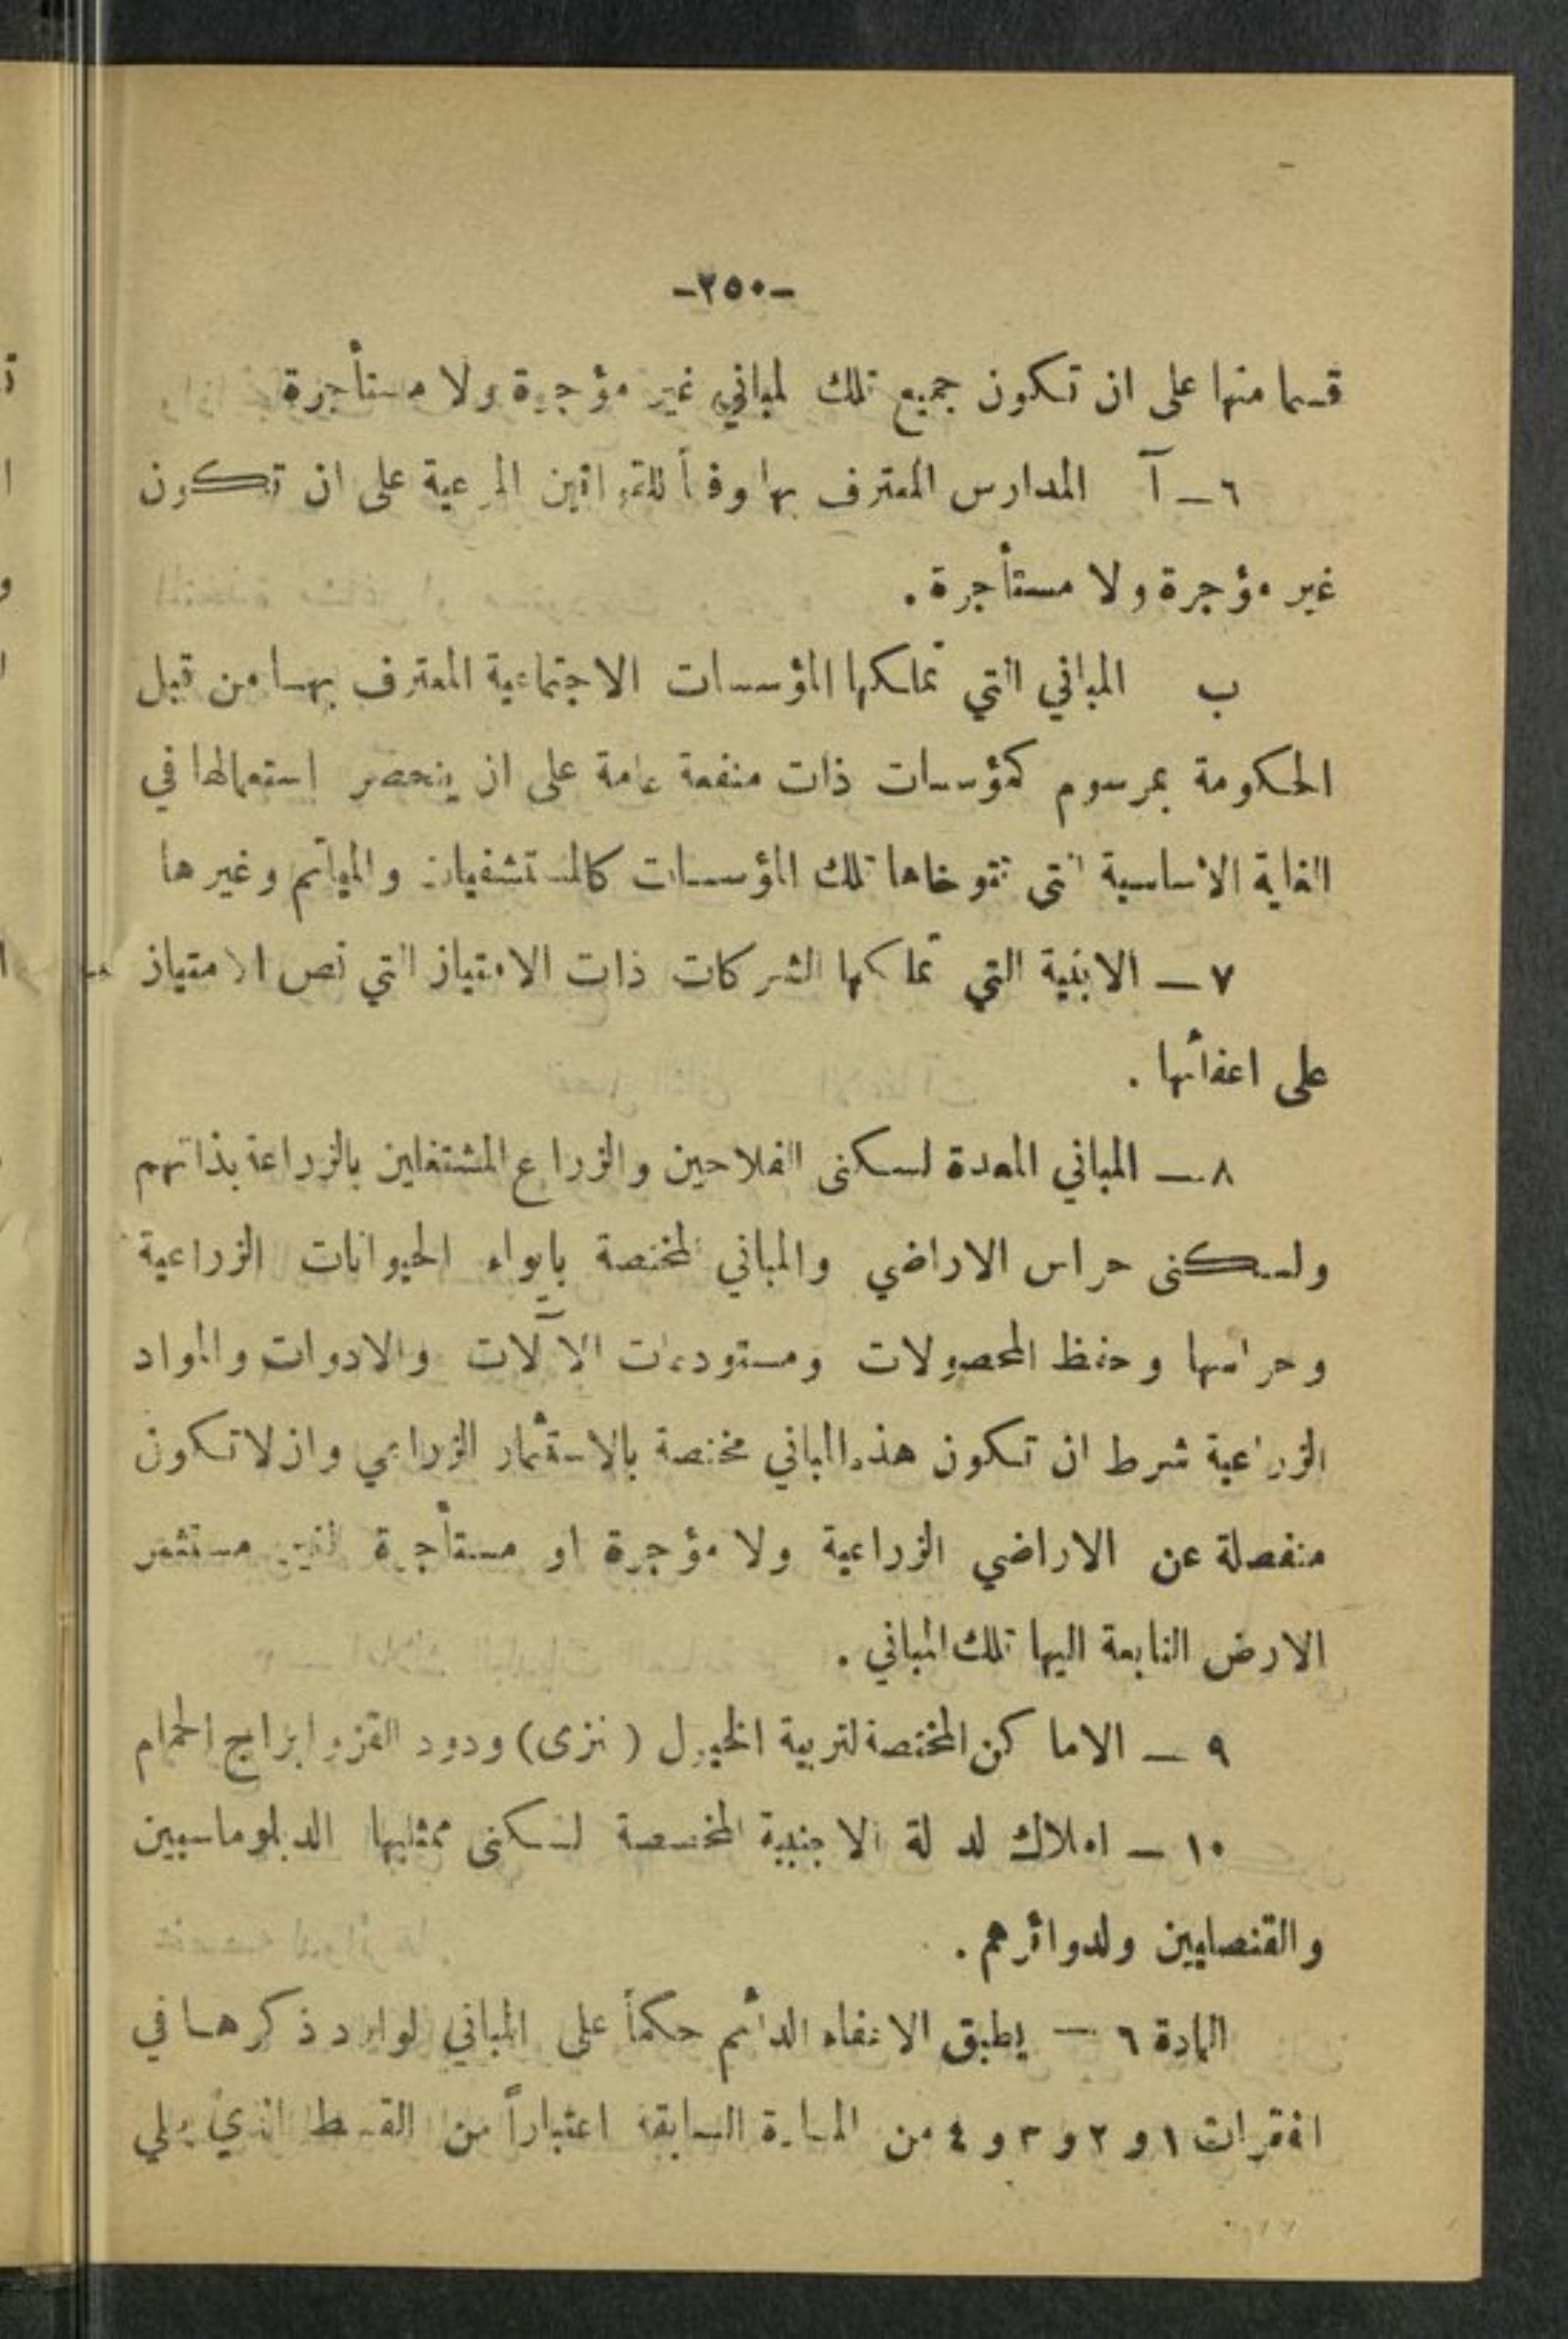 -٢٥٠-
قسما منها على ان تكون جميع تلك المباني غير مؤجرة ولا مستأجرة
٦ – آ المدارس المعترف بها وفقاً للقوانين المرعية على ان تكون
غير مؤجرة ولا مستأجرة .
ب المباني التي تملكها المؤسسات الاجتماعية المعترف بها من قبل
الحكومة بمرسوم كمؤسسات ذات منفعة عامة على ان ينحصر استعمالها في
الغاية الاساسية التي تتوخاها تلك المؤسسات كالمستشفيات والمياتم وغيرها
٧ – الابنية التي تملكها الشركات ذات الامتياز التي نص الامتياز
على اعفائها .
٨ – المباني المعدة لسكنى الفلاحين والزراع المشتغلين بالزراعة بذاتهم
ولسكنى حراس الاراضي والمباني المختصة بايواء الحيوانات الزراعية
وحراستها وحفظ المحصولات ومستودعات الآلات والادوات والمواد
الزراعية شرط ان تكون هذه المباني مختصة بالاستثمار الزراعي وان لا تكون
منفصلة عن الاراضي الزراعية ولا مؤجرة او مستأجرة لغير مستثمر
الارض التابعة اليها تلك المباني .
٩ – الاماكن المختصة لتربية الخيول ( نزى ) ودود القز وابراج الحمام
١٠ – املاك الدولة الاجنبية المخصصة لسكنى ممثليها الدبلوماسيين
والقنصليين ولدوائرهم .
المادة ٦ – يطبق الاعفاء الدائم حكماً على المباني الوارد ذكرها في
الفقرات ١ و ٢ و ٣ و ٤ من المادة السابقة اعتباراً من القسط الذي يلي